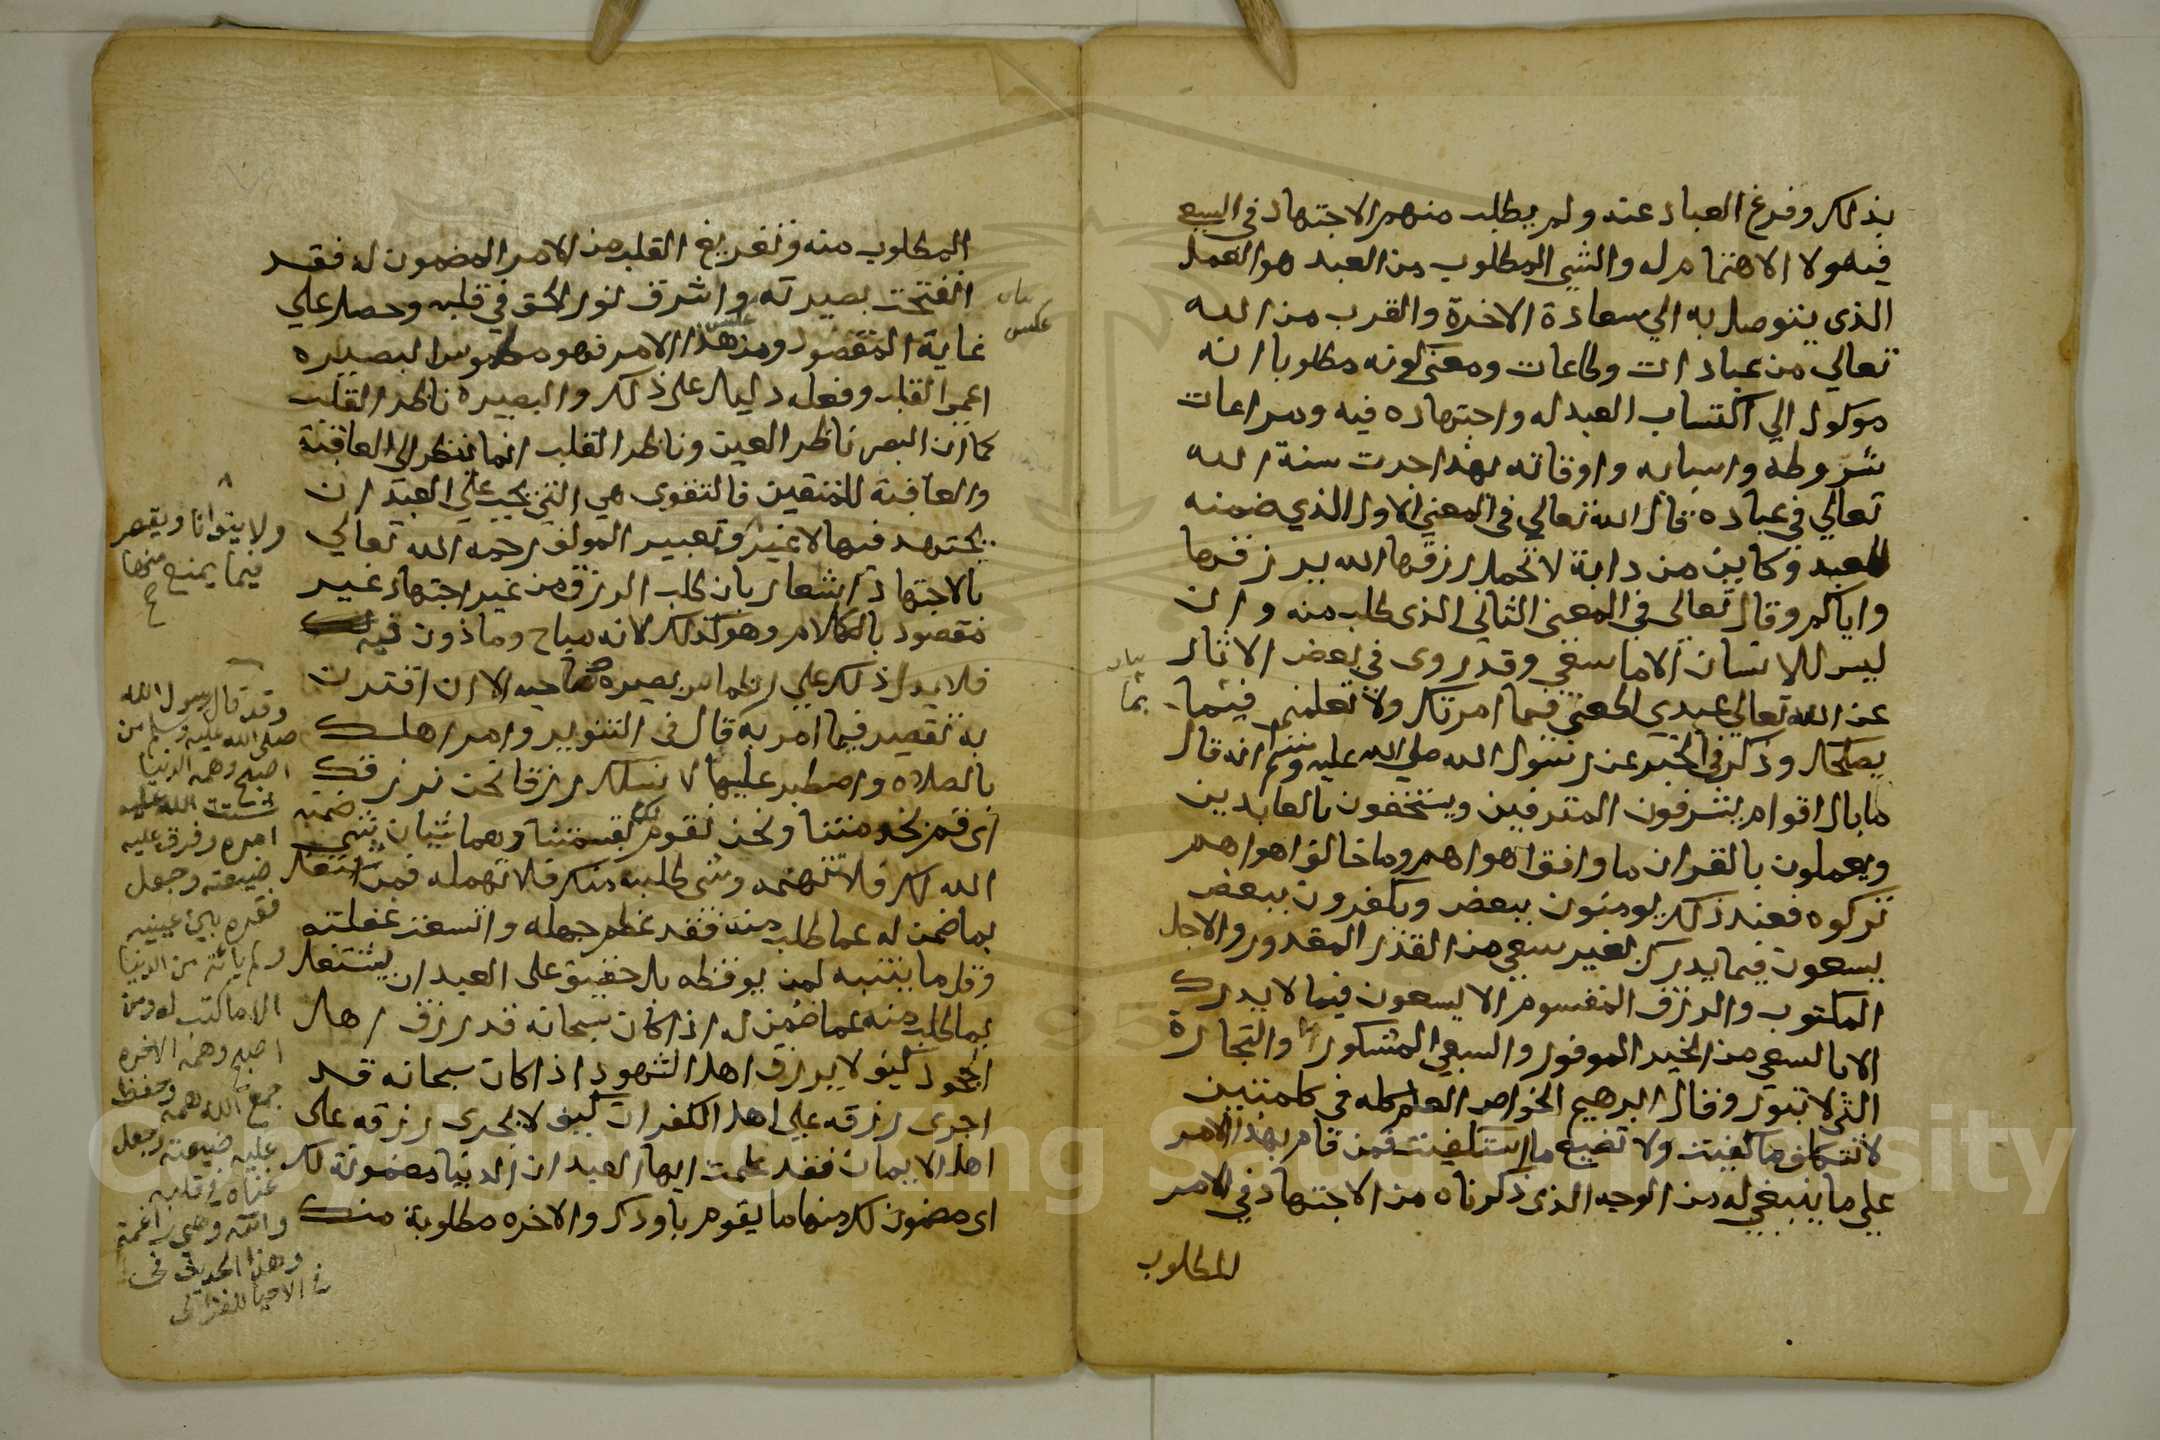 بذلك وفرغ العباد عنه ولم يطلب منهم الاجتهاد في السعي
فيه ولا الاهتمام له والشي المطلوب من العبد هو العمل
الذي يتوصل به الي سعادة الاخرة والقرب من الله
تعالي من عبادات وطاعات ومعني كونه مطلوبا انه
موكول الي اكتساب العبد له واجتهاده فيه ومراعات
شروطه واسبابه واوقاته بهذا جرت سنة الله
تعالي في عباده قال الله تعالي في المعني الاول الذي ضمنه
للعبد وكاين من دابة لا تحمل رزقها الله يرزقها
واياكم وقال تعالي في المعني الثاني الذي طلب منه وان
ليس للانسان الا ما سعي وقد روي في بعض الاثار
عن الله تعالي عبدي اطعني فيما امرتك ولا تعلمني فيما
بما
يصلحك وذكر في الخبر عن رسول الله صلي الله عليه وسلم انه قال
ما بال اقوام يشرفون المترفين ويستخفون بالعابدين
ويعملون بالقران ما وافق اهواهم وما خالف اهواهم
تركوه فعند ذلك يومنون ببعض ويكفرون ببعض
يسعون فيما يدرك بغير سعي من القدر المقدور والاجل
المكتوب والرزق المقسوم الا يسعون فيما لا يدرك
الا بالسعي من الخير الموفور والسعي المشكور والتجارة
التي لا تبور وقال ابرهيم الخواص العلم كله في كلمتين
لا تتكلف ما كفيت ولا تضيع ما استكفيت فمن قام بهذا الامر
علي ما ينبغي له من الوجه الذي ذكرناه من الاجتهاد في الامر
المطلوب
المطلوب منه وتفريغ القلب من الامر المضمون له فقد
انفتحت بصيرته واشرق نور الحق في قلبه وحصل علي
غاية المقصود ومن عكس هذا الامر فهو مطموس البصيره
عكس
اعمي القلب وفعله دليل علي ذلك والبصيرة ناظر القلب
كما ان البصر ناظر العين وناظر القلب انما ينظر الي العاقبة
والعاقبة للمتقين فالتقوي هي التي يجب علي العبد ان
يجتهد فيها لا غير وتعبير المولف رحمه الله تعالي
بالاجتهاد اشعار بان طلب الرزق من غير اجتهاد غير
مقصود بالكلام وهو كذلك لانه مباح وماذون فيه
فلا يدل ذلك علي انطماس بصيرة صاحبه الا ان اقترن
به تقصير فيما امر به قال في التنوير وامر اهلك
بالصلاه واصطبر عليها لا نسلك رزقا نحن نرزقك
اي قم بخدمتنا ونحن نقوم لك بقسمتنا وهما شيان شي ضمنه
الله لك فلا تتهمه وشي طلبه منك فلا تهمله فمن اشتغل
بما ضمن له عما طلب منه فقد عظم جهله واتسعت غفلته
وقل ما ينتبه لمن يوقظه بل حقيق علي العبد ان يشتغل
بما طلب منه عما ضمن له اذا كان سبحانه قد رزق اهل
الجحود كيف لا يرزق اهل الشهود اذا كان سبحانه قد
اجري رزقه علي اهل الكفران كيف لا يجري رزقه علي
اهل الايمان فقد علمت ايها العبد ان الدنيا مضمونة لك
اي مضمون لك منها ما يقوم باودك والاخره مطلوبة منك
ولا يتوانا ويقصر
فيما يمنع
وقد قال رسول الله
صلي الله عليه وسلم من
اصبح وهمه الدنيا
شتت الله عليه
امره وفرق عليه
ضيعته وجعل
فقره بين عينيه
ولم ياته من الدنيا
الا ما كتب له ومن
اصبح وهمه الاخره
جمع الله همه وحفظ
عليه ضيعته وجعل
غناه في قلبه
واتته وهي راغمة
وهذا الحديث في
الاحيا للغزالي
Copyright © King Saud University